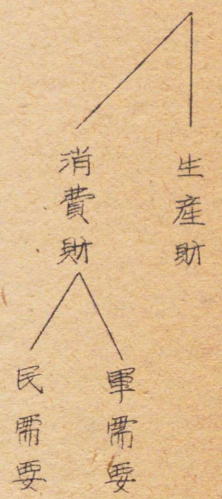 生産財
消費財
軍需要
民需要